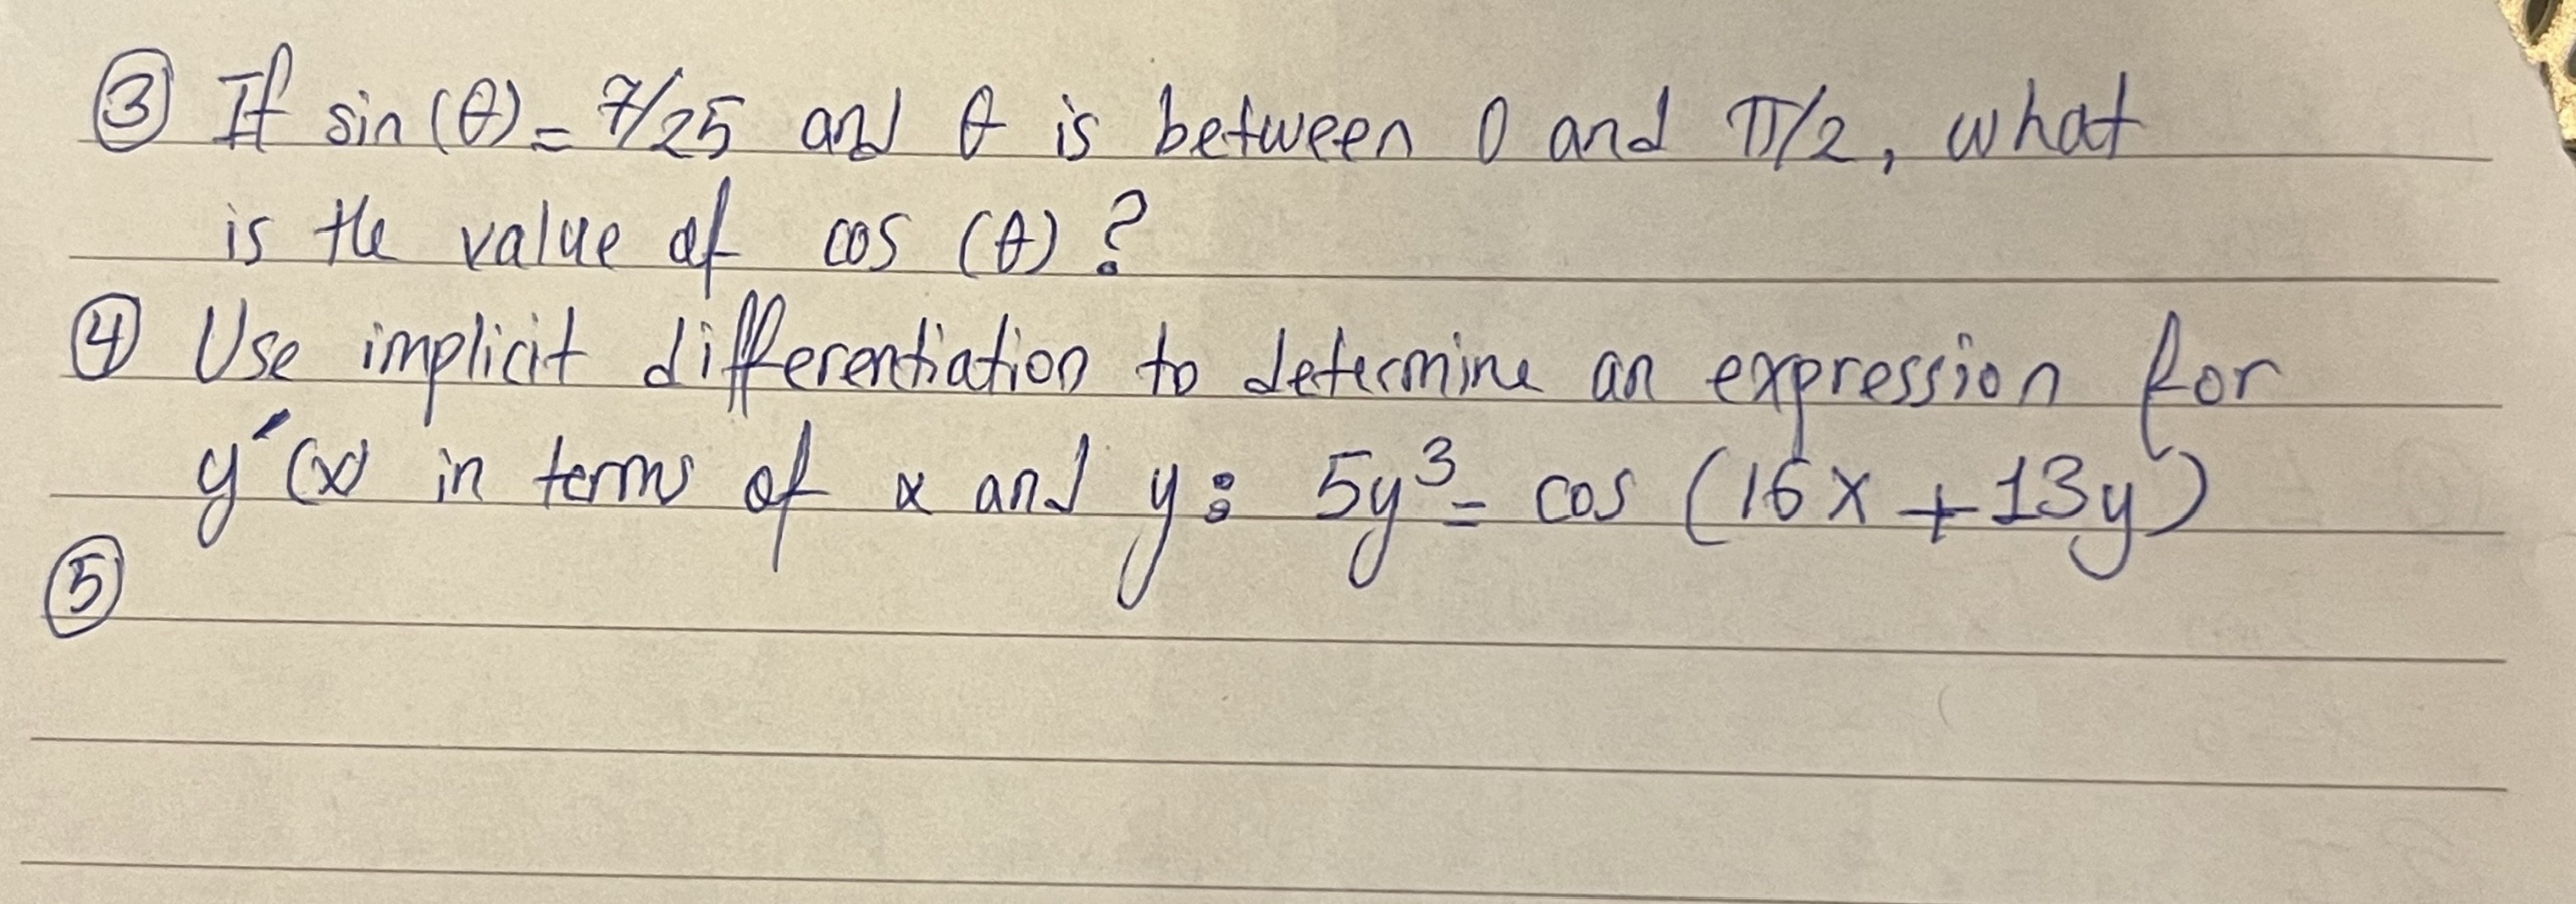 ③ If sin(θ) = 7/25 and θ is between 0 and π/2, what
is the value of cos (θ)?
④ Use implicit differentiation to determine an expression for
y′(x) in terms of x and y: 5y³ = cos (16x + 13y)
⑤